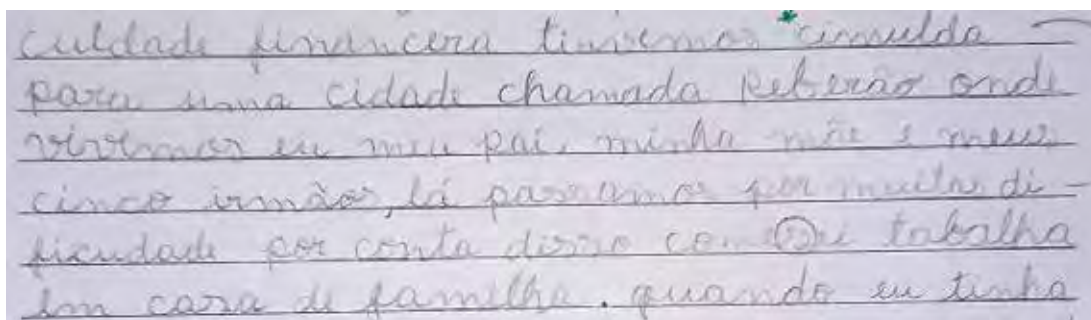 culdade financera tinremos cimulda -
para uma cidade chamada Reberão onde
vivemos eu meu pai, minha mãe e meus
cinco irmãos, lá passamos por muitas di -
ficudade por conta disso comesei tabalha
em casa de familha. quando eu tinha